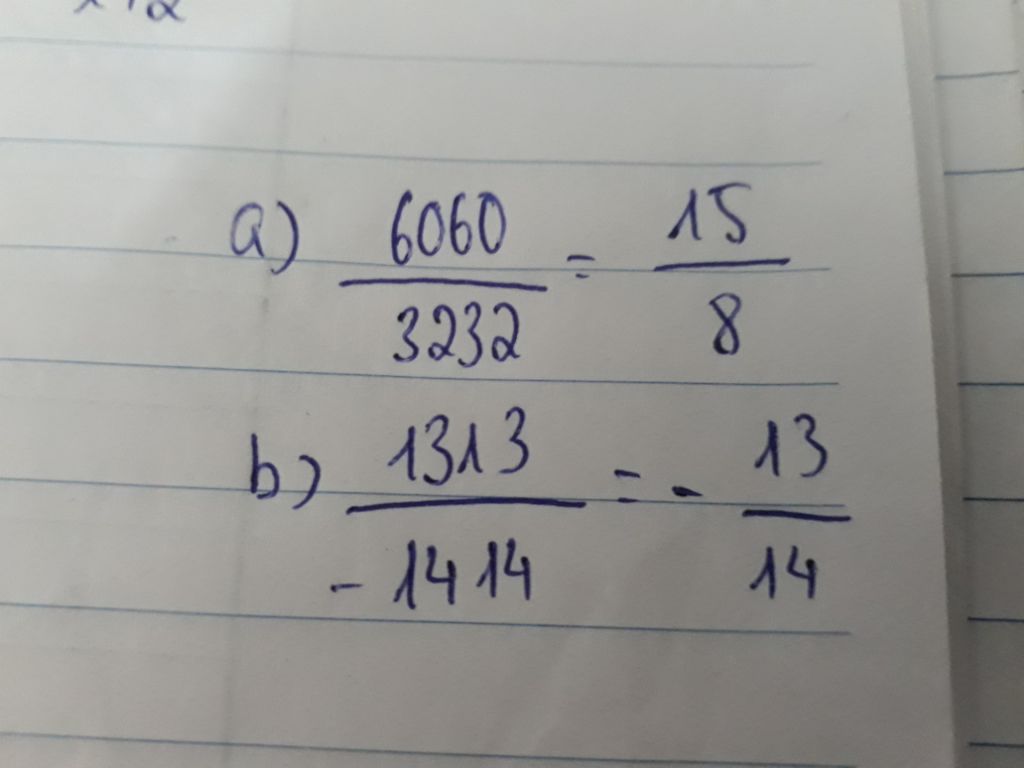 a) 6060/3232 = 15/8
b) 1313/-1414 = - 13/14